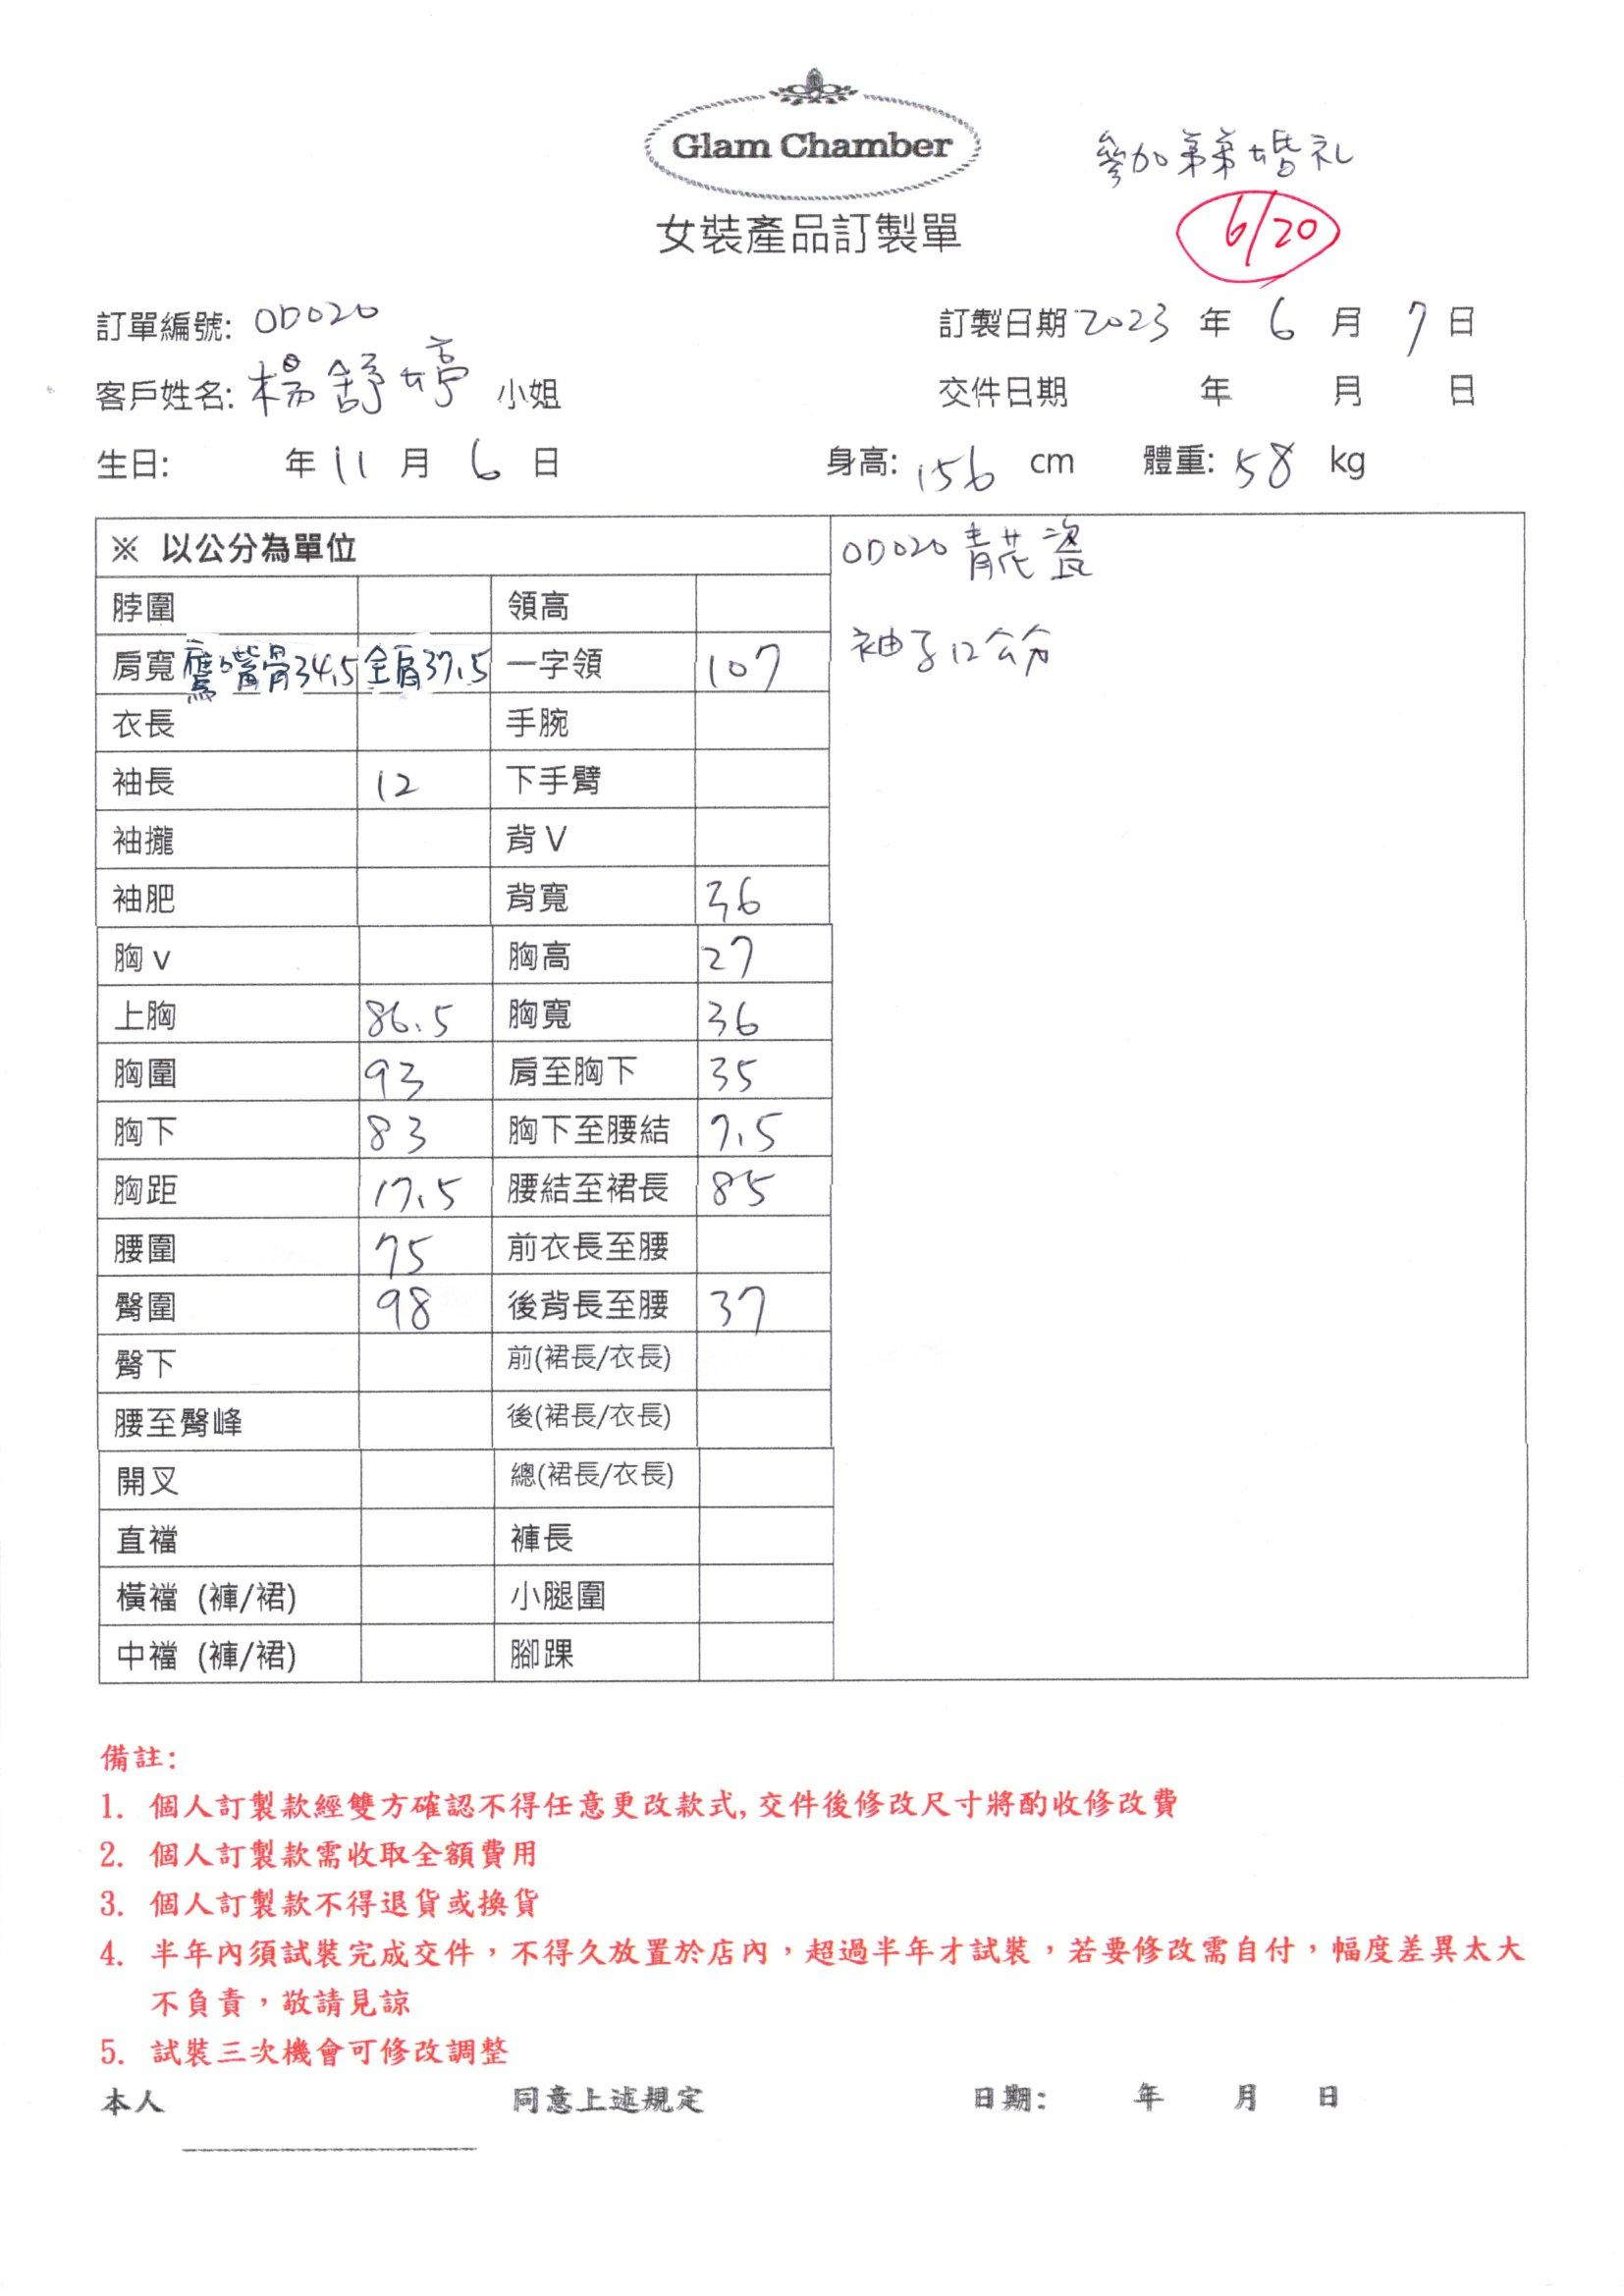 Glam Chamber
參加弟弟婚礼
女裝產品訂製單
6/20
訂單編號: OD020
訂製日期 2023 年 6 月 7 日
客戶姓名: 楊舒婷 小姐
交件日期 年 月 日
生日: 年 11 月 6 日
身高: 156 cm 體重: 58 kg
※ 以公分為單位
脖圍 領高
肩寬 鷹嘴骨34.5 全肩37.5 一字領 107
衣長 手腕
袖長 12 下手臂
袖攏 背 V
袖肥 背寬 36
胸 v 胸高 27
上胸 86.5 胸寬 36
胸圍 93 肩至胸下 35
胸下 83 胸下至腰結 7.5
胸距 17.5 腰結至裙長 85
腰圍 75 前衣長至腰
臀圍 98 後背長至腰 37
臀下 前(裙長/衣長)
腰至臀峰 後(裙長/衣長)
開叉 總(裙長/衣長)
直襠 褲長
橫襠 (褲/裙) 小腿圍
中襠 (褲/裙) 腳踝
OD020 青花瓷
袖子12公分
備註:
1. 個人訂製款經雙方確認不得任意更改款式, 交件後修改尺寸將酌收修改費
2. 個人訂製款需收取全額費用
3. 個人訂製款不得退貨或換貨
4. 半年內須試裝完成交件，不得久放置於店內，超過半年才試裝，若要修改需自付，幅度差異太大
不負責，敬請見諒
5. 試裝三次機會可修改調整
本人 同意上述規定 日期: 年 月 日